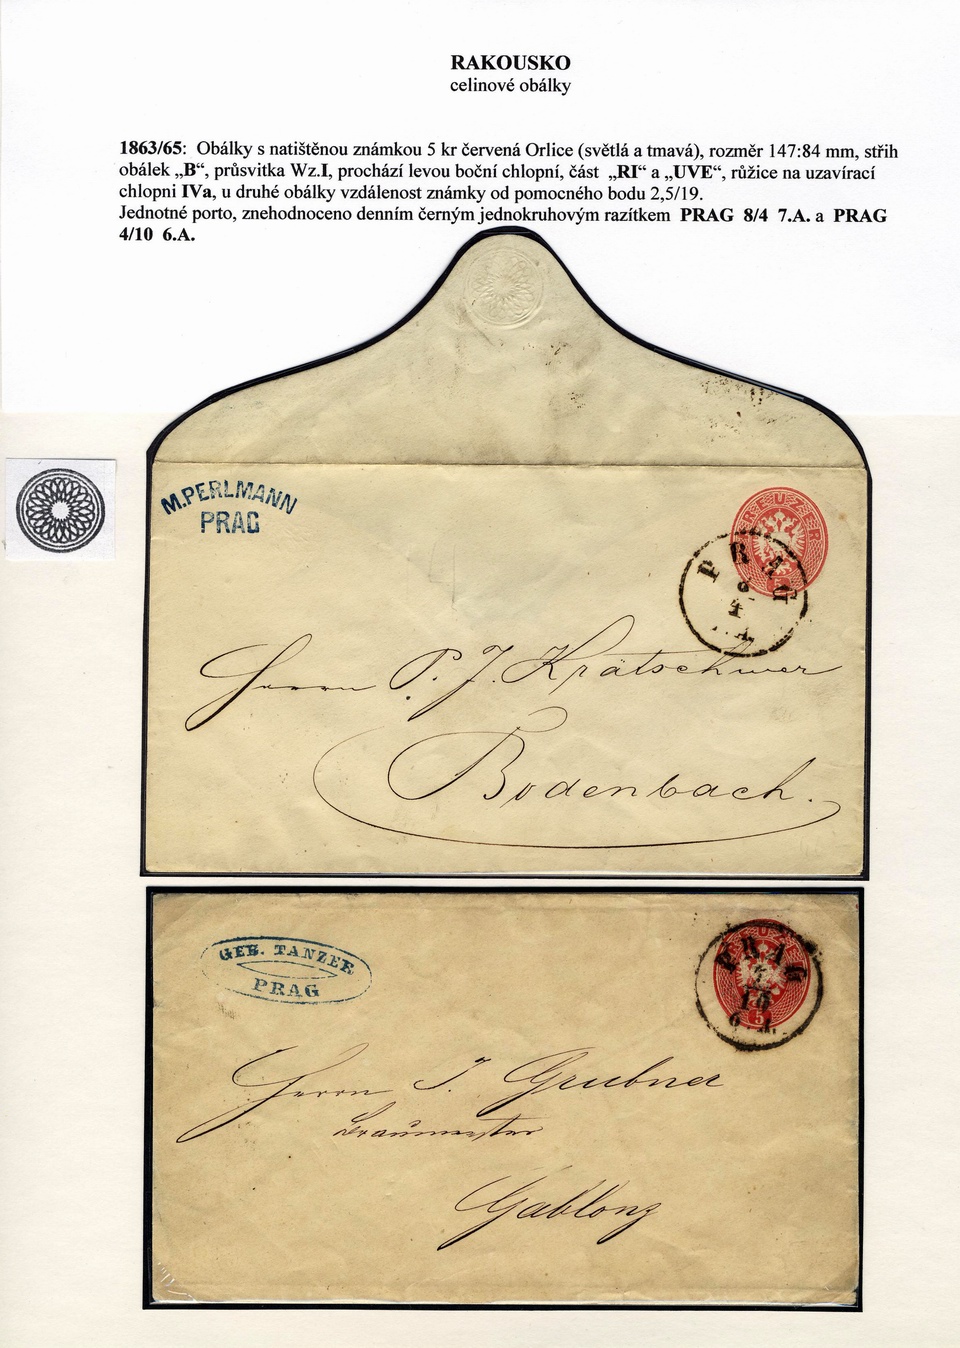 RAKOUSKO
celinové obálky
1863/65: Obálky s natištěnou známkou 5 kr červená Orlice (světlá a tmavá), rozměr 147:84 mm, střih
obálek „B“, průsvitka Wz.I, prochází levou boční chlopní, část „RI“ a „UVE“, růžice na uzavírací
chlopni IVa, u druhé obálky vzdálenost známky od pomocného bodu 2,5/19.
Jednotné porto, znehodnoceno denním černým jednokruhovým razítkem PRAG 8/4 7.A. a PRAG
4/10 6.A.
M.PERLMANN
PRAG
KREUZER
PRAG
4
A.
Herrn P. J. Krätschmer
Bodenbach.
GEB. TANZER
PRAG
KREUZER
5
PRAG
10
6 A.
Herrn J. Grubner
Braumeister
Gablonz